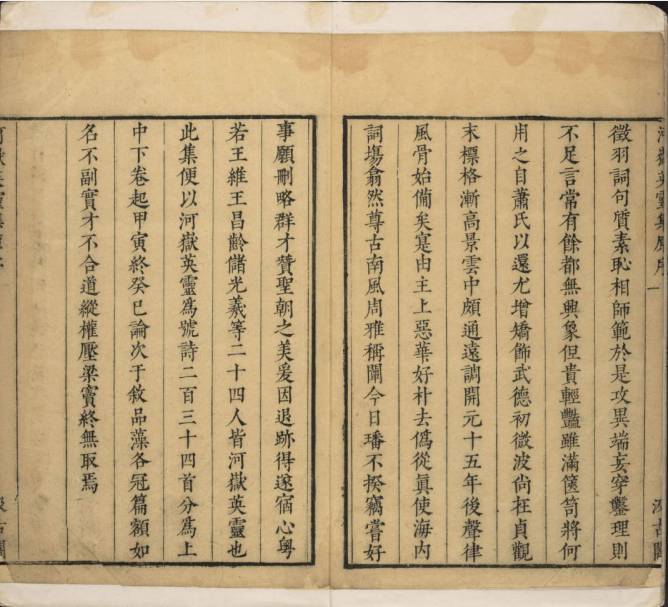 河嶽英靈集原序一
汲古閣
徵羽詞句質素恥相師範於是攻異端妄穿鑿理則
不足言常有餘都無興象但貴輕豔雖滿篋笥將何
用之自蕭氏以還尤增矯飾武德初微波尙在貞觀
末標格漸高景雲中頗通遠調開元十五年後聲律
風骨始備矣寔由主上惡華好朴去僞從眞使海内
詞塲翕然尊古南風周雅稱闡今日璠不揆竊嘗好
事願刪略群才贊聖朝之美爰因退跡得遂宿心粵
若王維王昌齡儲光羲等二十四人皆河嶽英靈也
此集便以河嶽英靈爲號詩二百三十四首分爲上
中下卷起甲寅終癸巳論次于敘品藻各冠篇額如
名不副實才不合道縱權壓梁竇終無取焉